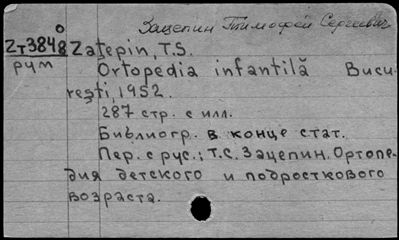 Зацепин Тимофей Сергеевич
Zт3848 Zaţepin, T.S.
рум Ortopedia infantilă Bucu-
reşti, 1952.
287 стр. с илл.
Библиогр. в конце стат.
Пер. с рус.: Т.С. Зацепин. Ортопе-
дия детского и подросткового
возраста.